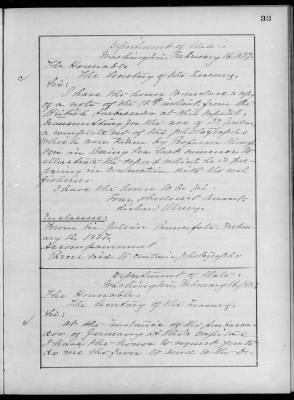 33
Department of State:
Washington, February 16, 1897.
The Honorable
The Secretary of the Treasury.
Sir:
I have the honor to enclose a copy
of a note of the 12th instant, from the
British Ambassador at this capital,
transmitting for the use of Dr. Jordan,
a complete set of the photographs
which were taken by Professor Thompson
in Bering Sea last summer to
illustrate the report which he is preparing
in connection with the seal
fisheries.
I have the honor to be, Sir:
Your obedient servant,
Richard Olney.
Enclosure:
From Sir Julian Pauncefote, February
12, 1897.
Accompaniment
Parcel said to contain photographs
Department of State:
Washington, February 16, 1897
The Honorable
The Secretary of the Treasury.
Sir:
At the instance of the Ambassador
of Germany at this Capital
I have the honor to request you to
do me the favor to send to the